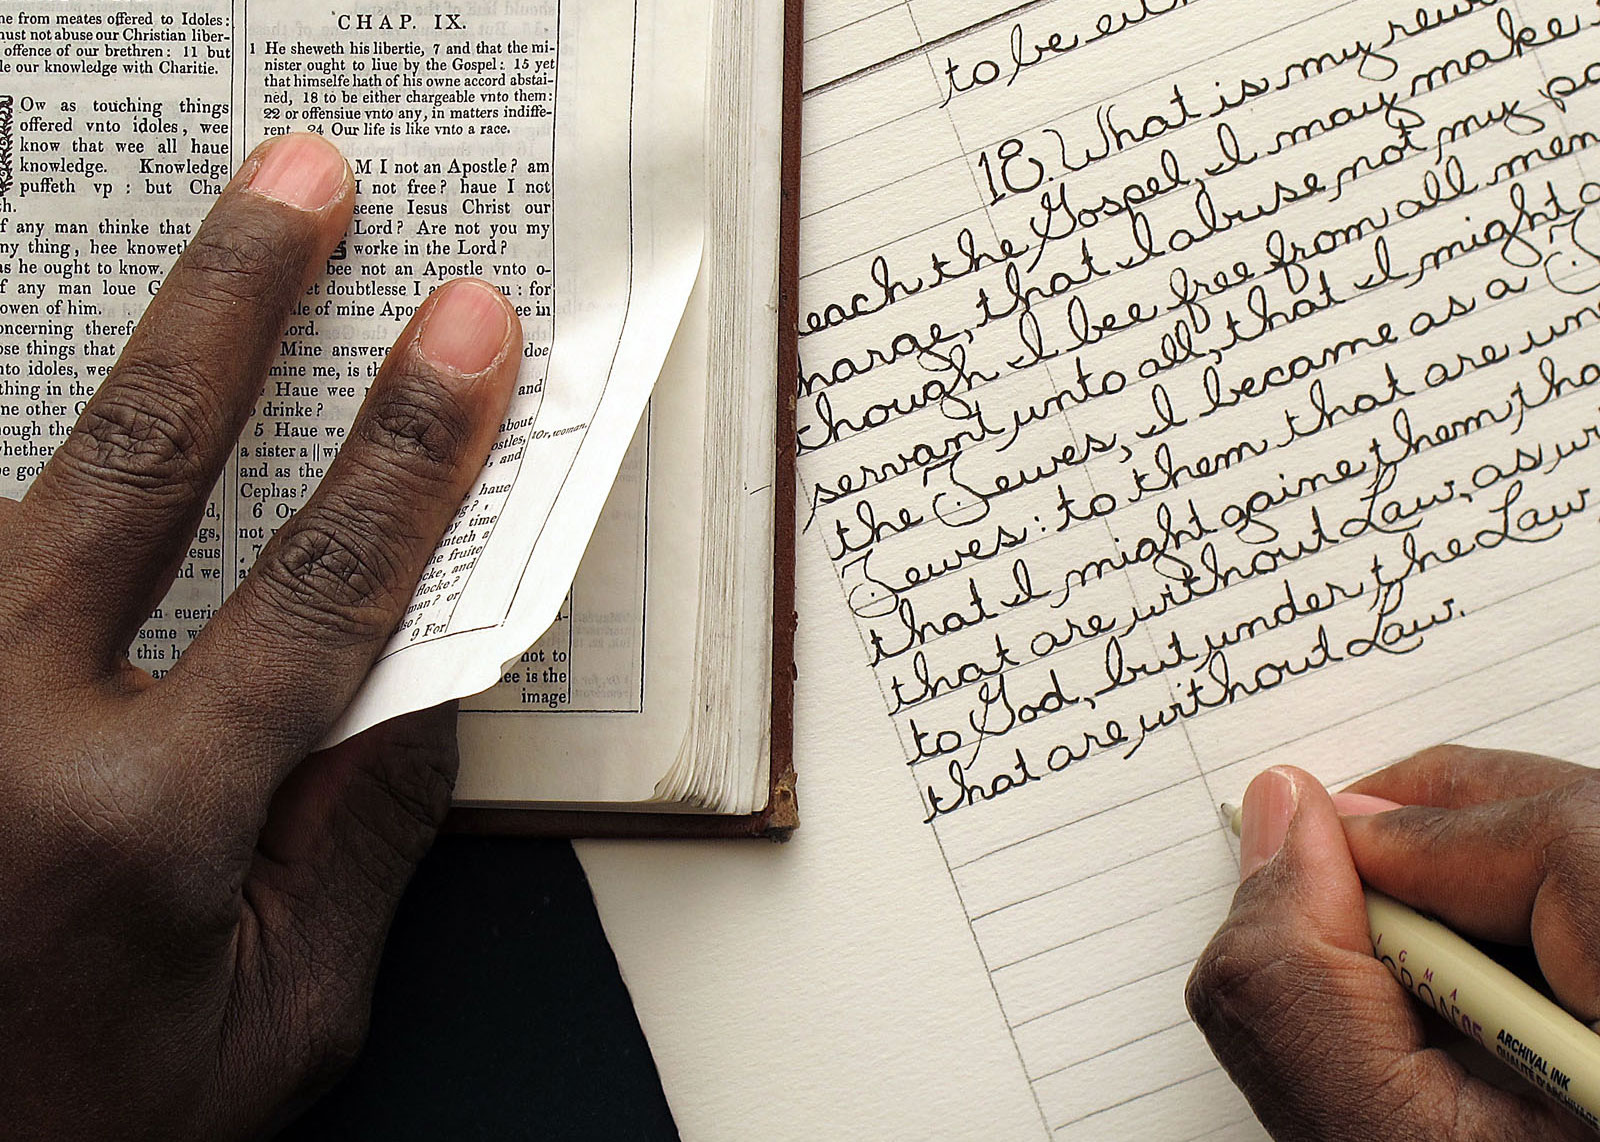 ne from meates offered to Idoles:
must not abuse our Christian liber-
offence of our brethren: 11 but
le our knowledge with Charitie.
Ow as touching things
offered vnto idoles, wee
know that wee all haue
knowledge. Knowledge
puffeth vp: but Cha-
any man thinke that
ny thing, hee knoweth
as he ought to know.
f any man loue G
owen of him.
oncerning theref
ose things that
nto idoles, wee
thing in the
ne other G
hough the
whether
be god
CHAP. IX.
1 He sheweth his libertie, 7 and that the mi-
nister ought to liue by the Gospel: 15 yet
that himselfe hath of his owne accord abstai-
ned, 18 to be either chargeable vnto them:
22 or offensiue vnto any, in matters indiffe-
rent. 24 Our life is like vnto a race.
M I not an Apostle? am
I not free? haue I not
seene Iesus Christ our
Lord? Are not you my
worke in the Lord?
bee not an Apostle vnto o-
et doubtlesse I a ou: for
le of mine Apos ee in
ord.
Mine answere doe
mine me, is th
Haue wee and
drinke?
5 Haue we about
a sister a || wi ostles, ||Or, woman.
and as the and
Cephas?
6 Or haue
not
time
anteth a
he fruite
ocke, and
flocke?
man? or
also?
9 For
not to
ee is the
image
to be eith
18. What is my rew
each the Gospel, I may make
harge, that I abuse not my po
though I bee free from all men
servant unto all, that I might
the Jewes, I became as a J
Jewes: to them that are un
that I might gaine them tha
that are without Law, as wi
to God, but under the Law
that are without Law.
IGMA
MICRON 05
ARCHIVAL INK
QUALITE D'ARCHIVAGE